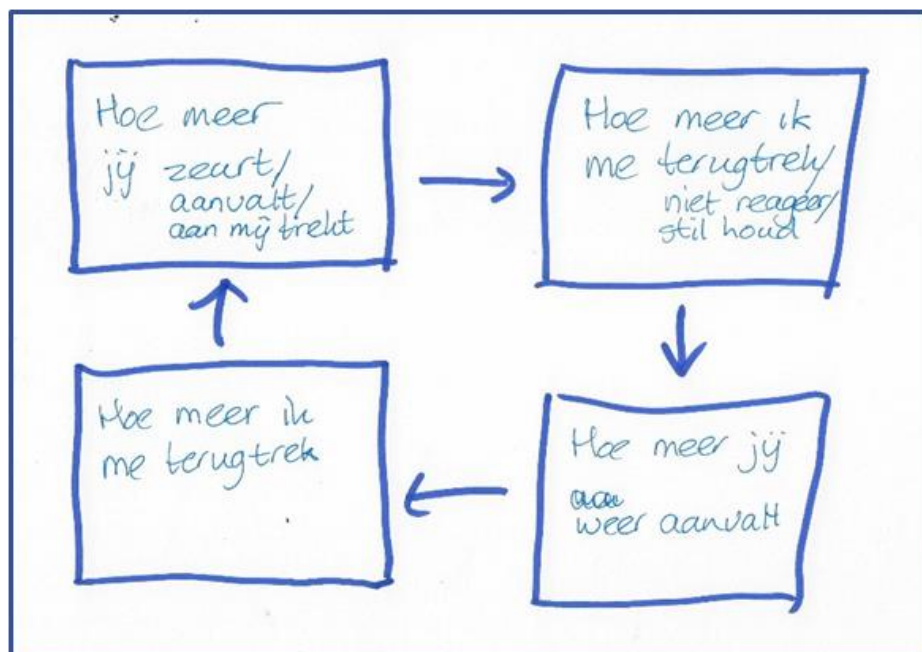 Hoe meer
jij zeurt/
aanvalt/
aan mij trekt
Hoe meer ik
me terugtrek/
niet reageer/
stil houd
Hoe meer jij
weer aanvalt
Hoe meer ik
me terugtrek